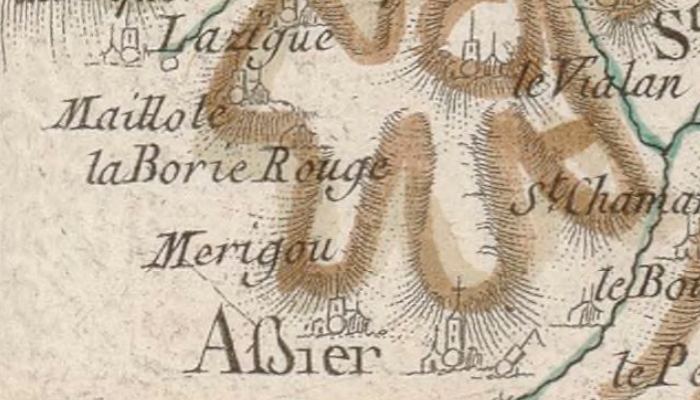 Lazigue
le Vialan
St
Maillole
la Borie Rouge
St Chama
Merigou
le Bou
Aßier
le P